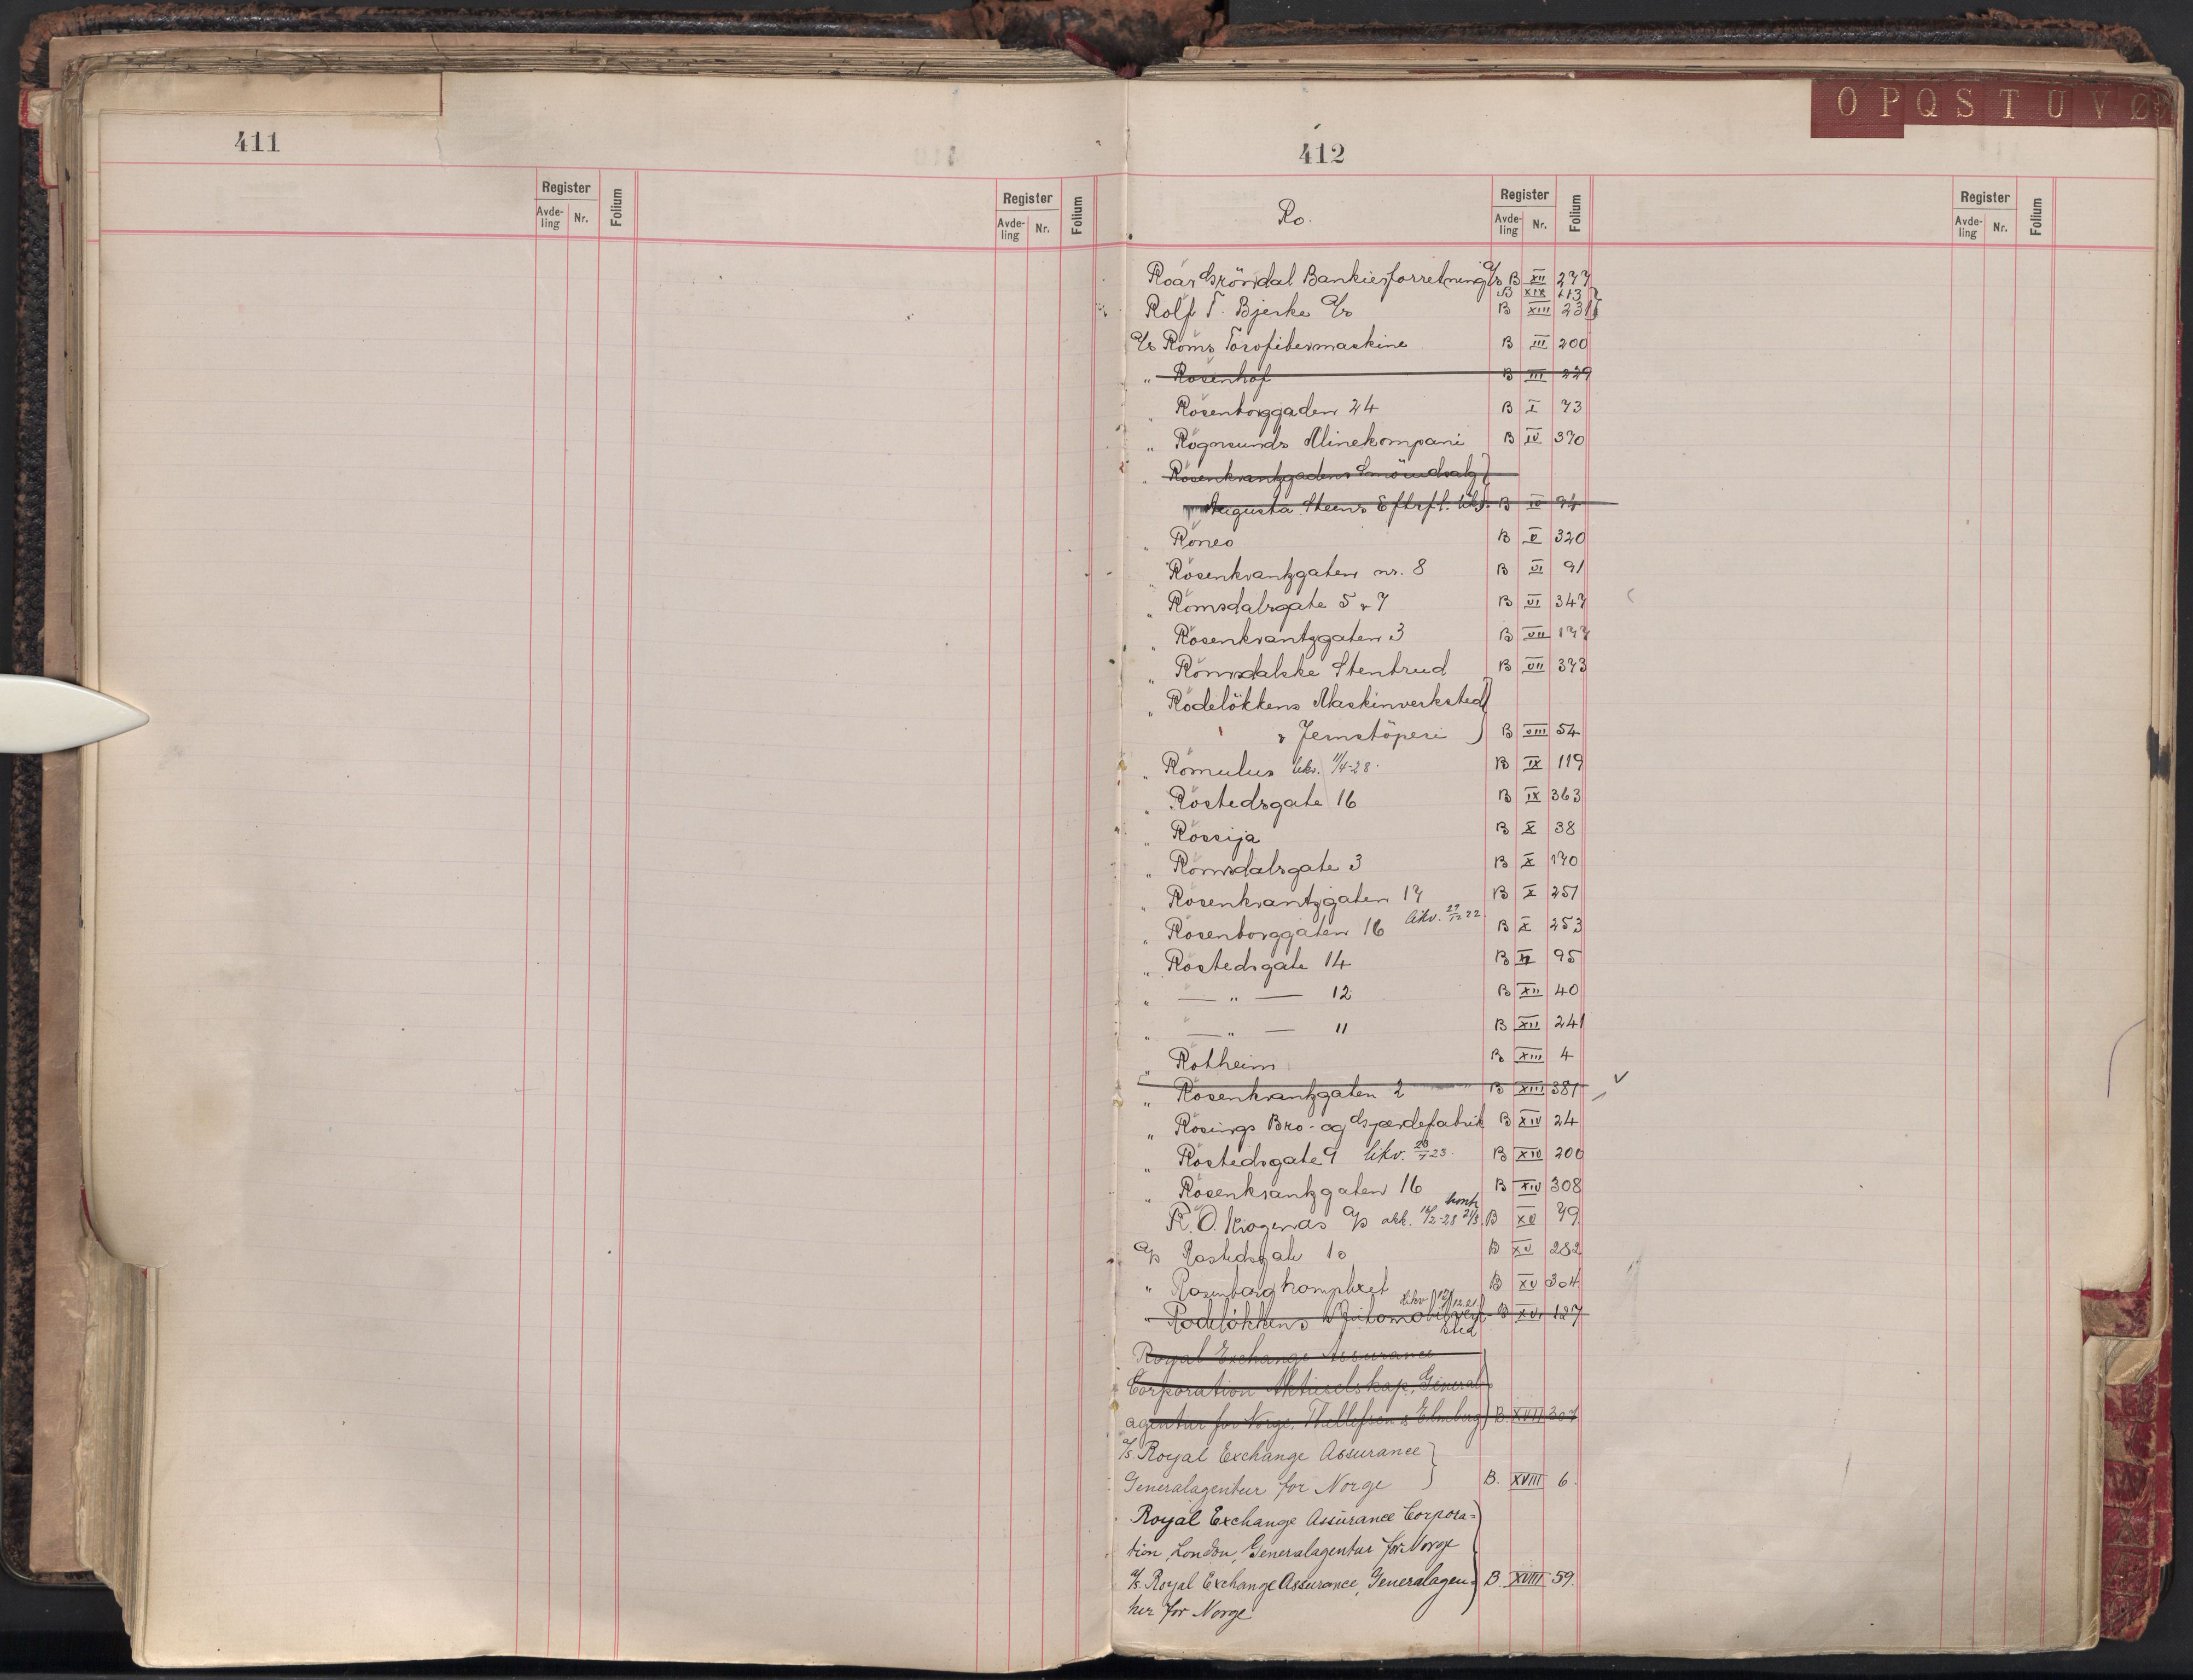 411
Register Folium Register Folium
Avde-ling Nr. Avde-ling Nr.
O P Q S T U V Ø
412
Register Folium Register Folium
Ro. Avde-ling Nr. Avde-ling Nr.
Roar Gröndal Bankierforretning A/s B XII 277
B XIX 113
Rolf T. Bjerke A/s B XIII 231
A/s Roms Torofibermaskine B III 200
" Rosenhof B III 229
" Rosenborggaden 24 B I 73
" Rognsunds Minekompani B IV 370
" Rosenkrantzgadens Smörudsalg
Augusta Steens Eftrflt. B IV 94
" Roneo B V 320
" Rosenkrantzgaten nr. 8 B VI 91
" Romsdalsgate 5 & 7 B VI 347
" Rosenkrantzgaten 3 B VII 177
" Romsdalske Stenbrud B VII 373
" Rodelökkens Maskinverksted
& Jernstöperi B VIII 54
" Romulus likv. 11/4-28. B IX 119
" Rostedsgate 16 B IX 363
" Rossija B X 38
" Romsdalsgate 3 B X 170
" Rosenkrantzgaten 17 B X 251
" Rosenborggaten 16 likv. 29/12 22 B X 253
" Rostedsgate 14 B XI 95
" — " — 12 B XII 40
" — " — 11 B XII 241
" Rotheim B XIII 4
" Rosenkrantzgaten 2 B XIII 381
" Rosings Bro- og Gjærdefabrik B XIV 24
" Rostedsgate 9 likv. B XIV 200
" Rosenkrantzgaten 16 B XIV 308
R. O. Krogenæs A/s akk. 16/2-28 konk 21/3 B XV 79
A/s Rostedsgate 10 B XV 282
" Rosenborg komplext B XV 304
" Rodelökkens Automobilverk-sted likv B XVI 127
Royal Exchange Assurance
Corporation Aktieselskap, General
agentur for Norge, Thellefsen & Elmberg B XVII 307
A/s Royal Exchange Assurance
Generalagentur for Norge B. XVIII 6.
Royal Exchange Assurance Corpora=
tion, London, Generalagentur for Norge
A/s. Royal Exchange Assurance, Generalagen= B. XVIII 59.
tur for Norge